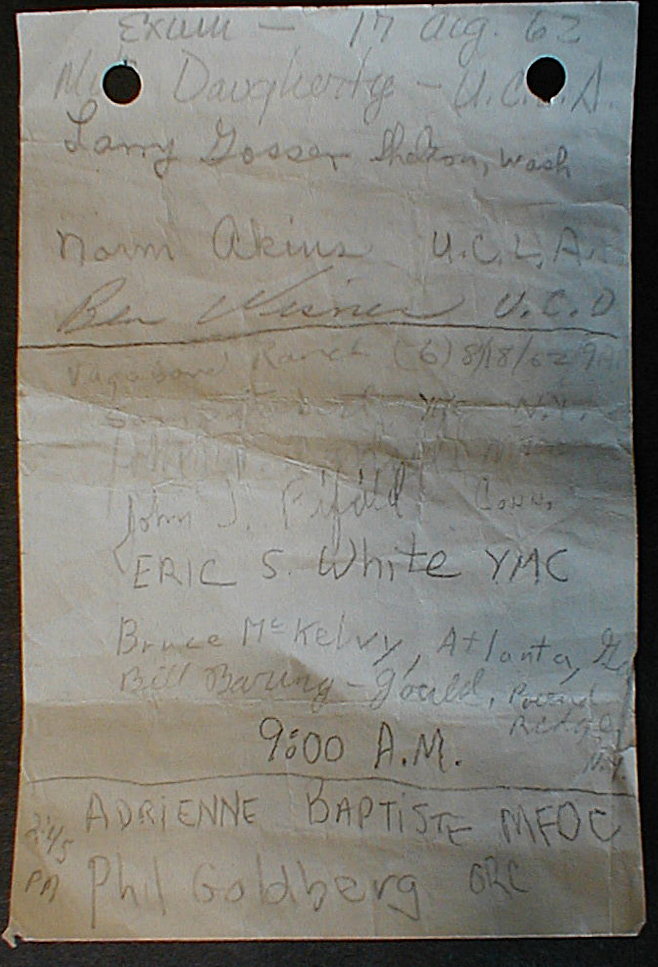 Exum - 17 Aug. 62
Daugherty - U.C.L.A.
Larry Gosser Shelton, Wash
Norm Akins U.C.L.A.
Ben U.C.D
Vagabond Ranch (6) 8/18/62 9AM
YMC N.Y.
John J. Fifield Conn.
ERIC S. White YMC
Bruce McKelvy, Atlanta, Ga
Bill Baring-Gould, Pound
Ridge,
N.Y.
9:00 A.M.
ADRIENNE BAPTISTE MFOC
2:45
PM Phil Goldberg ORC